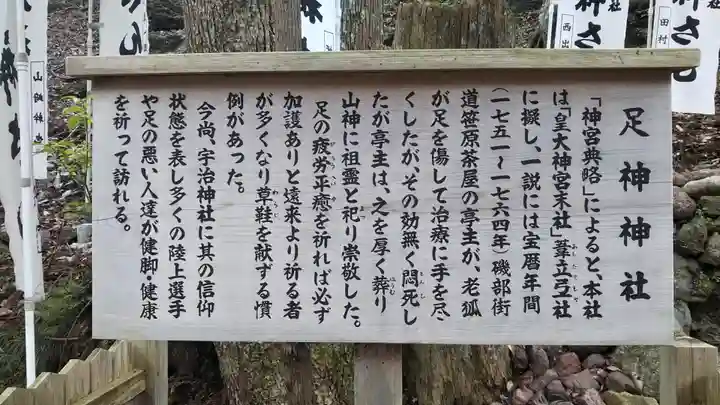 足神神社
「神宮典略」によると、本社
は「皇大神宮末社」葦立弖社
に擬し、一説には宝暦年間
(一七五一～一七六四年)磯部街
道笹原茶屋の亭主が、老狐
が足を傷して治療に手を尽
くしたが、その効無く悶死し
たが亭主は、之を厚く葬り
山神に祖霊と祀り崇敬した。
足の疲労平癒を祈れば必ず
加護ありと遠来より祈る者
が多くなり草鞋を献ずる慣
例があった。
今尚、宇治神社に其の信仰
状態を表し多くの陸上選手
や足の悪い人達が健脚・健康
を祈って訪れる。
神さん
西出
神さん
田村
山神神社